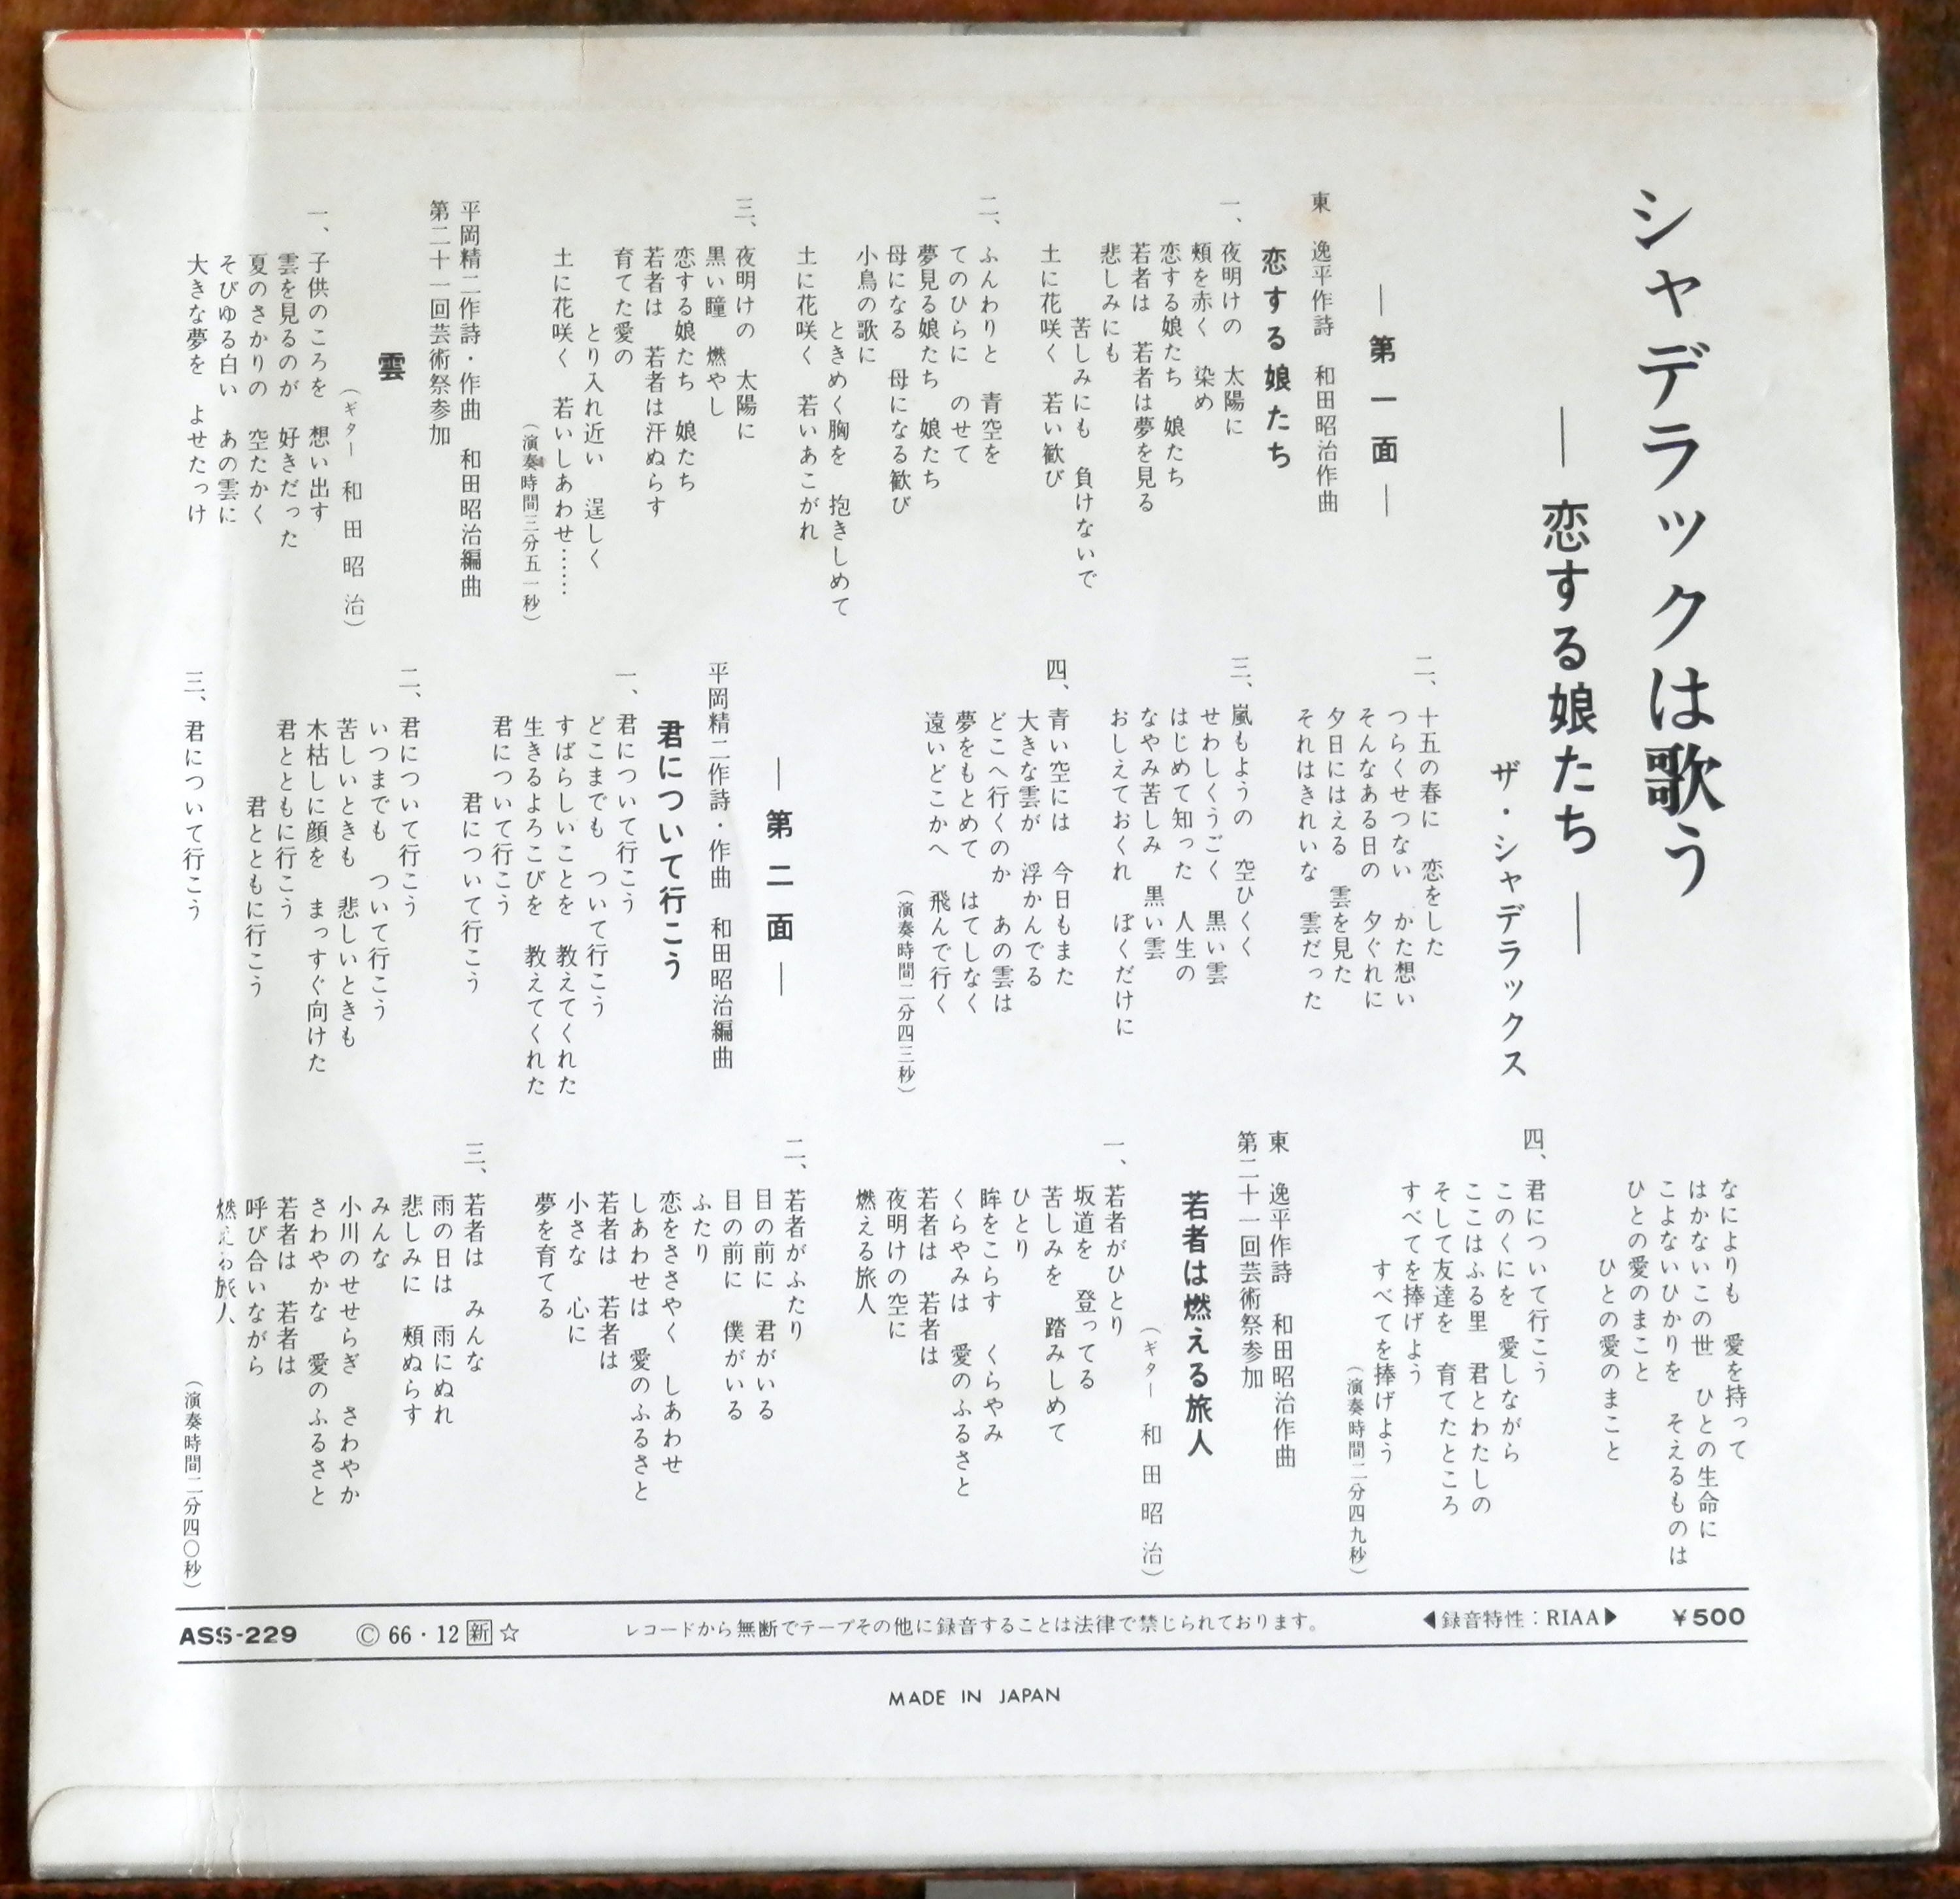 シャデラックは歌う
― 恋する娘たち ―
ザ・シャデラックス
― 第一面 ―
東 逸平作詩 和田昭治作曲
恋する娘たち
一、夜明けの 太陽に
頬を赤く 染め
恋する娘たち 娘たち
若者は 若者は夢を見る
悲しみにも
苦しみにも 負けないで
土に花咲く 若い歓び
二、ふんわりと 青空を
てのひらに のせて
夢見る娘たち 娘たち
母になる 母になる歓び
小鳥の歌に
ときめく胸を 抱きしめて
土に花咲く 若いあこがれ
三、夜明けの 太陽に
黒い瞳 燃やし
恋する娘たち 娘たち
若者は 若者は汗ぬらす
育てた愛の
とり入れ近い 逞しく
土に花咲く 若いしあわせ……
(演奏時間三分五一秒)
平岡精二作詩・作曲 和田昭治編曲
第二十一回芸術祭参加
雲
(ギター 和田昭治)
一、子供のころを 想い出す
雲を見るのが 好きだった
夏のさかりの 空たかく
そびゆる白い あの雲に
大きな夢を よせたっけ
二、十五の春に 恋をした
つらくせつない かた想い
そんなある日の 夕ぐれに
夕日にはえる 雲を見た
それはきれいな 雲だった
三、嵐もようの 空ひくく
せわしくうごく 黒い雲
はじめて知った 人生の
なやみ苦しみ 黒い雲
おしえておくれ ぼくだけに
四、青い空には 今日もまた
大きな雲が 浮かんでる
どこへ行くのか あの雲は
夢をもとめて はてしなく
遠いどこかへ 飛んで行く
(演奏時間二分四三秒)
― 第二面 ―
平岡精二作詩・作曲 和田昭治編曲
君について行こう
一、君について行こう
どこまでも ついて行こう
すばらしいことを 教えてくれた
生きるよろこびを 教えてくれた
君について行こう
君について行こう
二、君について行こう
いつまでも ついて行こう
苦しいときも 悲しいときも
木枯しに顔を まっすぐ向けた
君とともに行こう
君とともに行こう
三、君について行こう
なによりも 愛を持って
はかないこの世 ひとの生命に
こよないひかりを そえるものは
ひとの愛のまこと
ひとの愛のまこと
四、君について行こう
このくにを 愛しながら
ここはふる里 君とわたしの
そして友達を 育てたところ
すべてを捧げよう
すべてを捧げよう
(演奏時間二分四九秒)
東 逸平作詩 和田昭治作曲
第二十一回芸術祭参加
若者は燃える旅人
(ギター 和田昭治)
一、若者がひとり
坂道を 登ってる
苦しみを 踏みしめて
ひとり
眸をこらす くらやみ
くらやみは 愛のふるさと
若者は 若者は
夜明けの空に
燃える旅人
二、若者がふたり
目の前に 君がいる
目の前に 僕がいる
ふたり
恋をささやく しあわせ
しあわせは 愛のふるさと
若者は 若者は
小さな 心に
夢を育てる
三、若者は みんな
雨の日は 雨にぬれ
悲しみに 頬ぬらす
みんな
小川のせせらぎ さわやか
さわやかな 愛のふるさと
若者は 若者は
呼び合いながら
燃える旅人
(演奏時間二分四〇秒)
ASS-229 Ⓒ66・12 新 ☆ レコードから無断でテープその他に録音することは法律で禁じられております。 ◀録音特性:RIAA▶ ¥500
MADE IN JAPAN